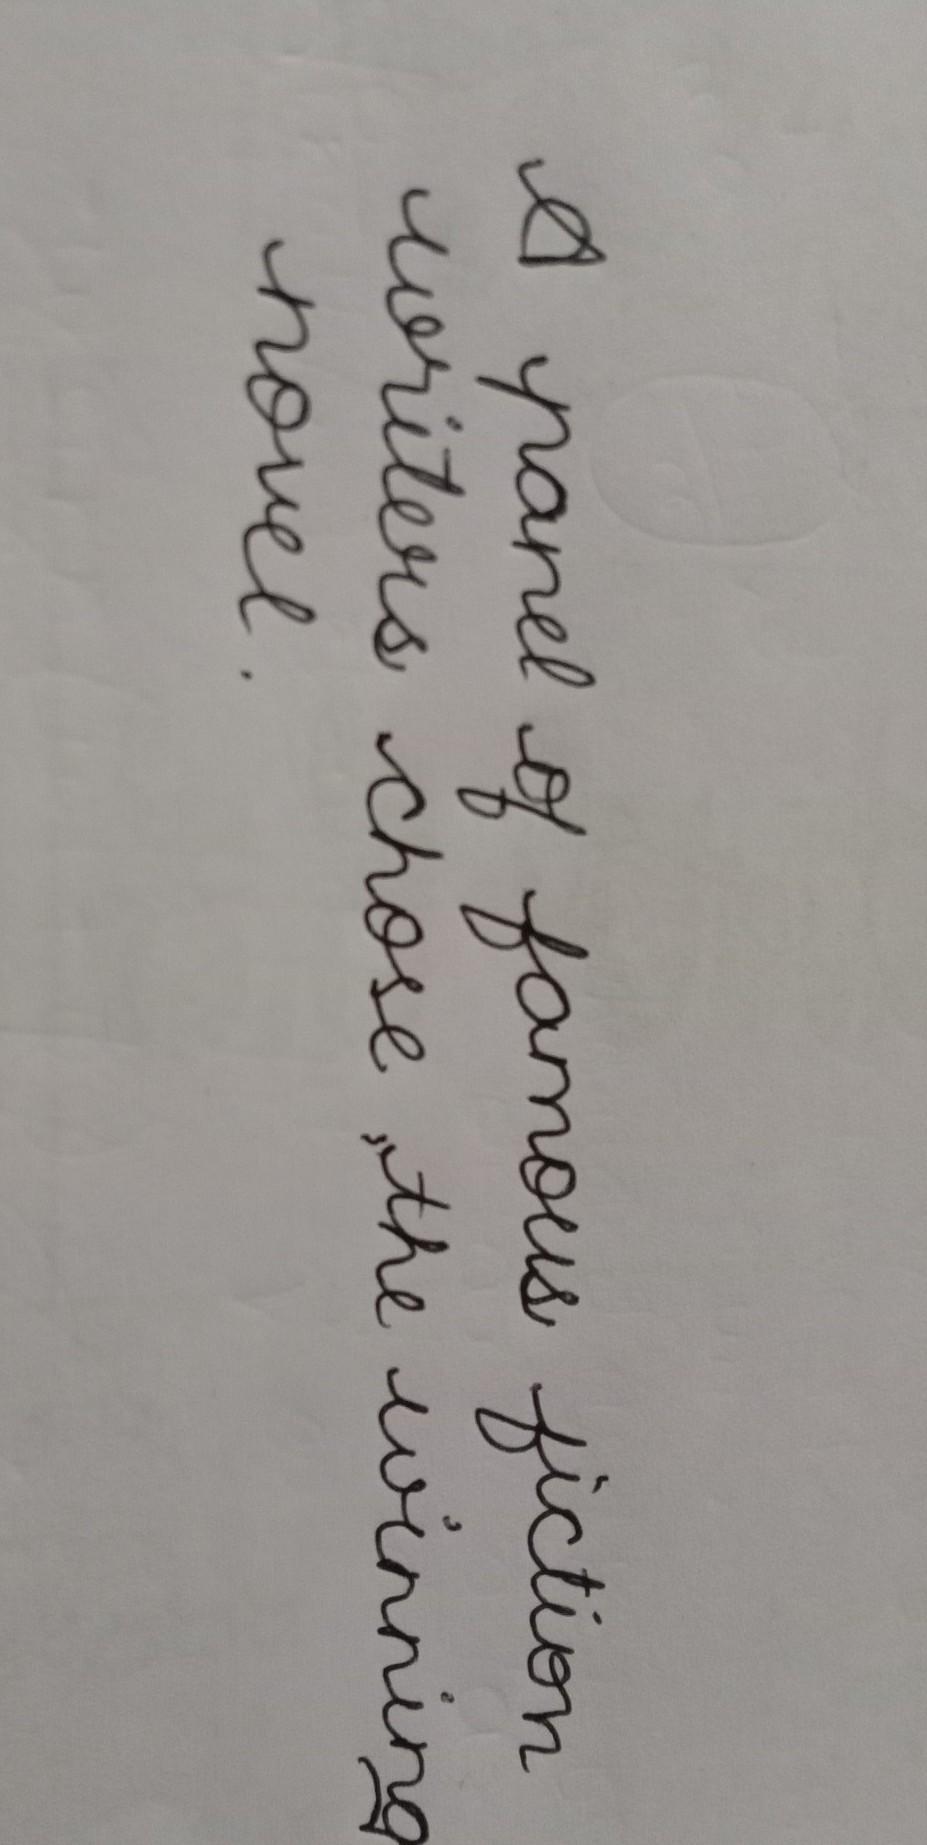 A panel of famous fiction
writers chose ,,the winning
novel.